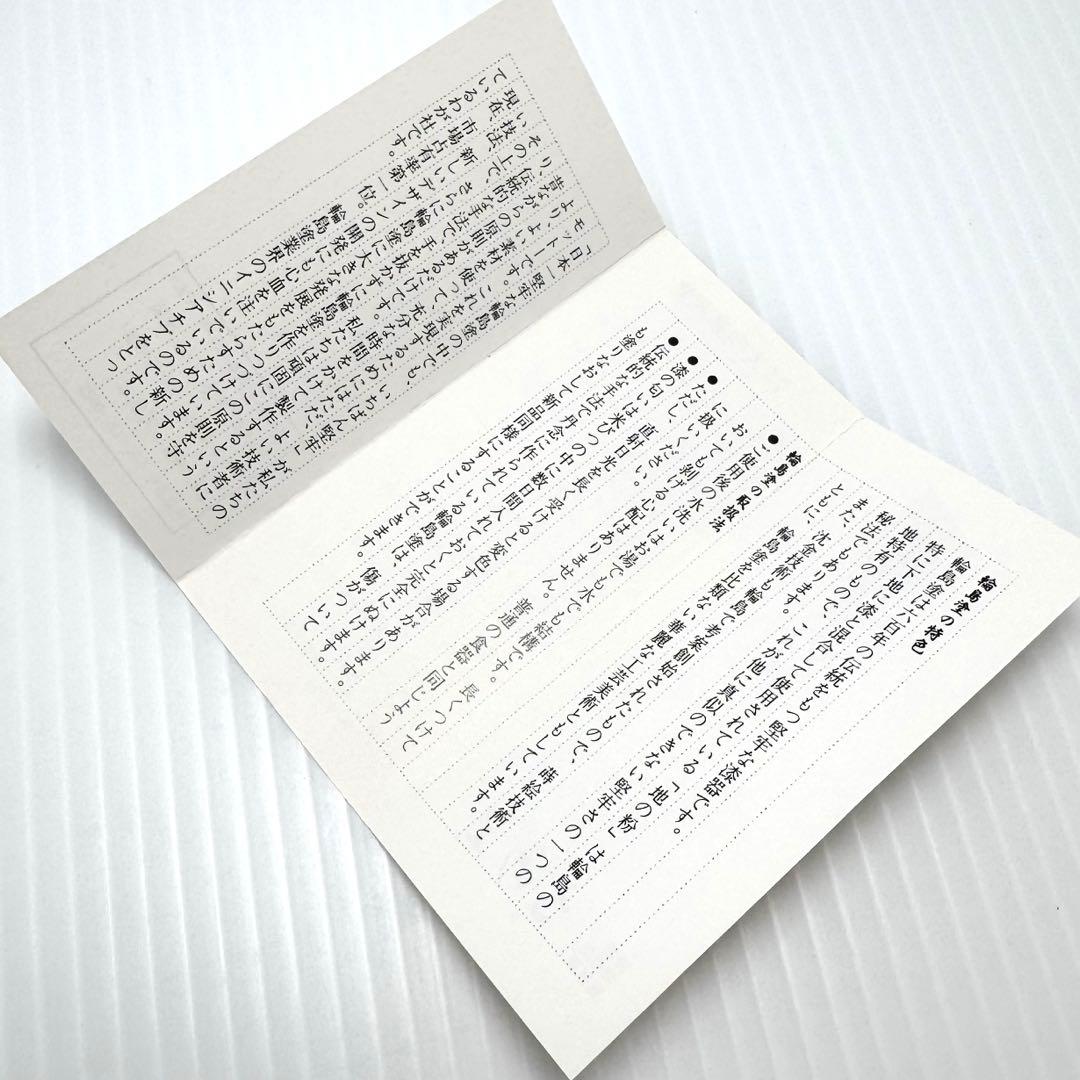 輪島塗の特色
輪島塗は六百年の伝統をもつ堅牢な漆器です。
特に下地に漆と混合して使用されている「地の粉」は輪島の
地特有のもので、これが他に真似のできない堅牢さの一つの
秘法でもあります。
また、沈金技術も輪島で考案創始されたもので、蒔絵技術と
ともに、輪島塗を比類ない華麗な工芸美術ともしています。
輪島塗の取扱法
●ご使用後の水洗いはお湯でも水でも結構です。長くつけて
おいても剥げる心配はありません。普通の食器と同じよう
に扱いください。
●ただし、直射日光を長く受けると変色する場合があります。
●漆の匂いは米びつの中に数日間入れておくと完全にぬけます。
●伝統的な手法で丹念に作られている輪島塗は、傷がついて
も塗りなおして新品同様にすることができます。
「日本一堅牢な輪島塗の中でも、いちばん堅牢」が私たちの
モットーです。これを実現するためには、ただ、よい技術者に
より、よい素材を使って、充分な時間をかけて製作するという
昔ながらの原則があるだけです。私たちは頑固にこの原則を守
り、伝統的な手法で、手を抜かずに輪島塗を作りつづけています。
その上で、さらに輪島塗の大きな発展をもたらすための新し
い技法、新しいデザインの開発にも心血を注いでいるのです。
現在、市場占有率第一位。輪島塗業界のイニシアチブをとっ
ているわが社です。